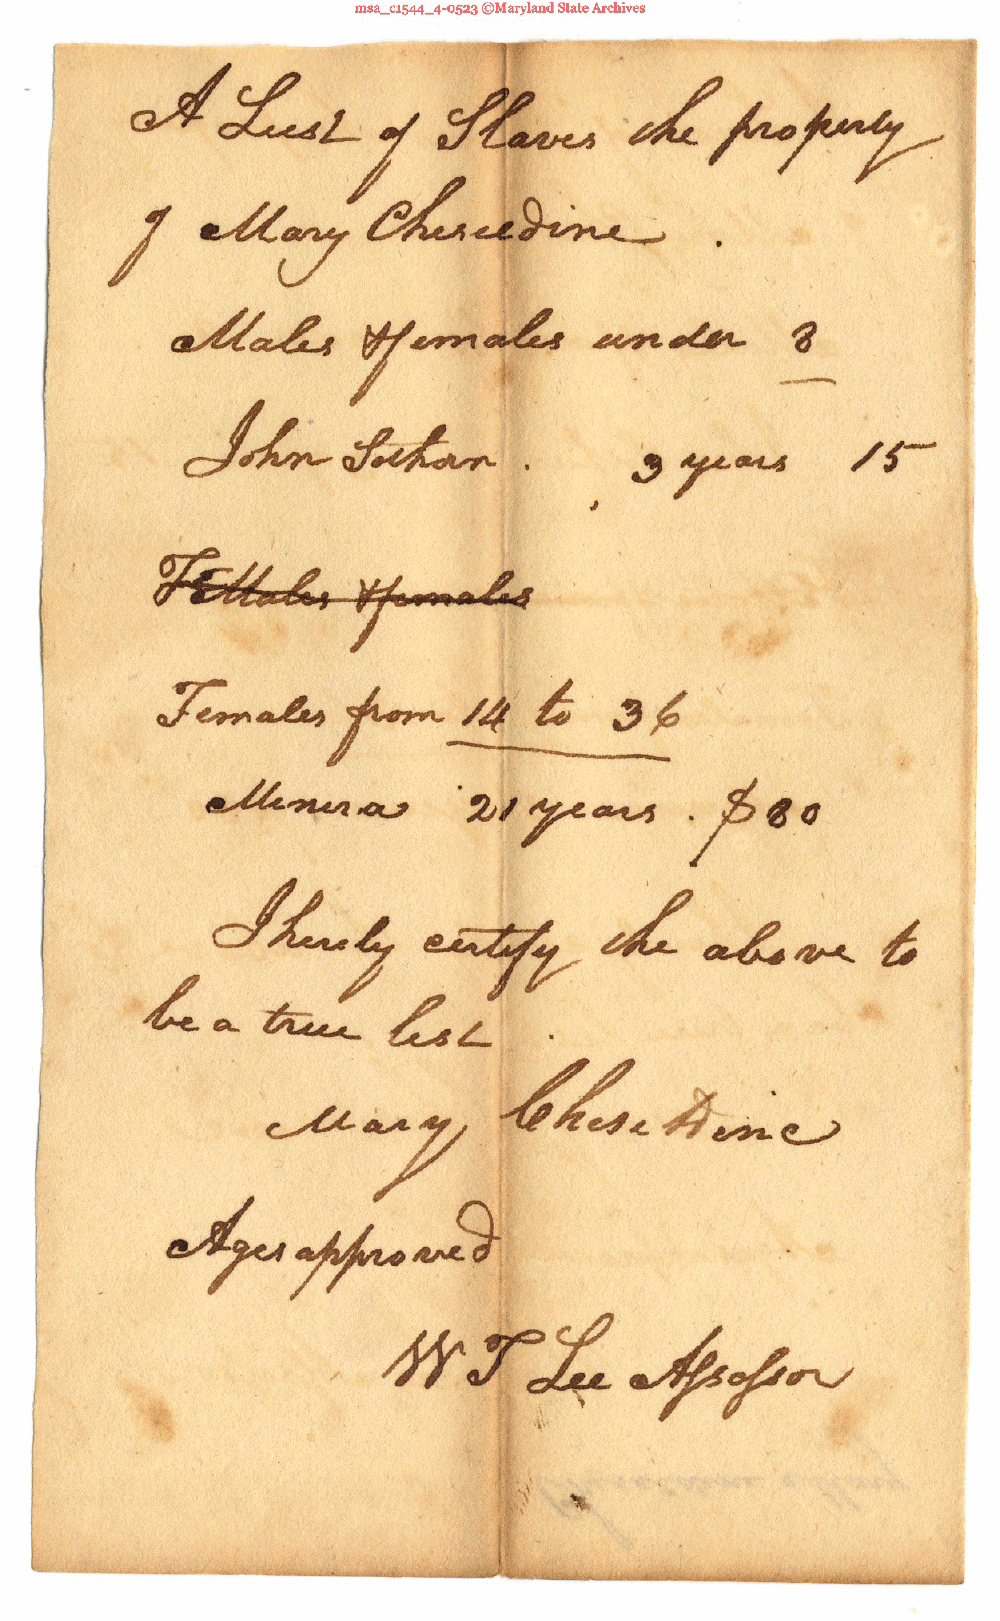 msa_c1544_4-0523 ©Maryland State Archives
A List of Slaves the property
of Mary Cheseldine .
Males & females under 8
John Sothoron . 3 years 15
Males & females
Females from 14 to 36
Minera 21 years . $80
I hereby certify the above to
be a true list .
Mary Cheseldine
Ages approved
W T Lee Assessor